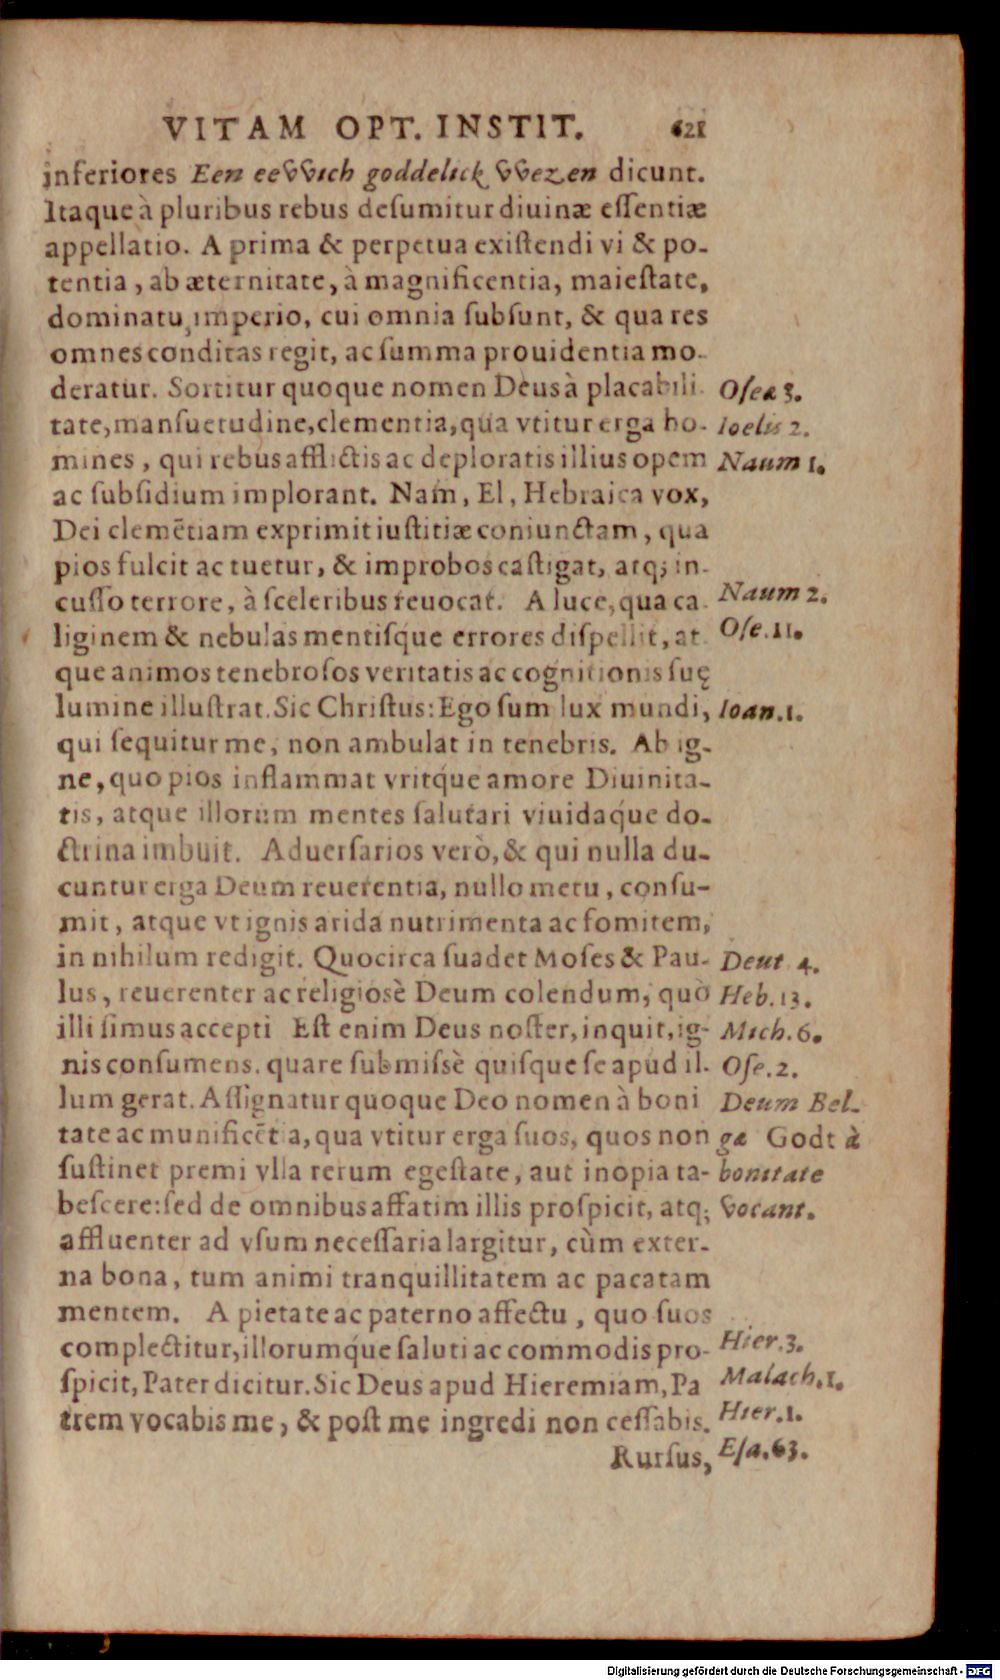 VITAM OPT. INSTIT. 621
inferiores Een eeVVich goddelick VVezen dicunt.
Itaque à pluribus rebus desumitur diuinæ essentiæ
appellatio. A prima & perpetua existendi vi & po-
tentia, ab æternitate, à magnificentia, maiestate,
dominatu, imperio, cui omnia subsunt, & qua res
omnes conditas regit, ac summa prouidentia mo-
deratur. Sortitur quoque nomen Deus à placabili-
Osea 3.
tate, mansuetudine, clementia, qua vtitur erga ho-
Ioelis 2.
mines, qui rebus afflictis ac deploratis illius opem
Naum 1.
ac subsidium implorant. Nam, El, Hebraica vox,
Dei clemẽtiam exprimit iustitiæ coniunctam, qua
pios fulcit ac tuetur, & improbos castigat, atq; in-
cusso terrore, à sceleribus reuocat. A luce, qua ca-
Naum 2.
liginem & nebulas mentisque errores dispellit, at-
Ose. 11.
que animos tenebrosos veritatis ac cognitionis suę
lumine illustrat. Sic Christus: Ego sum lux mundi,
Ioan. 1.
qui sequitur me, non ambulat in tenebris. Ab ig-
ne, quo pios inflammat vritq́ue amore Diuinita-
tis, atque illorum mentes salutari viuidaq́ue do-
ctrina imbuit. Aduersarios verò, & qui nulla du-
cuntur erga Deum reuerentia, nullo metu, consu-
mit, atque vt ignis arida nutrimenta ac fomitem,
in nihilum redigit. Quocirca suadet Moses & Pau-
Deut 4.
lus, reuerenter ac religiosè Deum colendum, quò
Heb. 13.
illi simus accepti Est enim Deus noster, inquit, ig-
Mich. 6.
nis consumens. quare submissè quisque se apud il-
Ose. 2.
lum gerat. Assignatur quoque Deo nomen à boni
Deum Bel-
tate ac munificẽtia, qua vtitur erga suos, quos non
gæ Godt à
sustinet premi vlla rerum egestate, aut inopia ta-
bonitate
bescere: sed de omnibus affatim illis prospicit, atq;
Vocant.
affluenter ad vsum necessaria largitur, cùm exter-
na bona, tum animi tranquillitatem ac pacatam
mentem. A pietate ac paterno affectu, quo suos
complectitur, illorumq́ue saluti ac commodis pro-
Hier. 3.
spicit, Pater dicitur. Sic Deus apud Hieremiam, Pa
Malach. 1.
trem vocabis me, & post me ingredi non cessabis.
Hier. 1.
Rursus,
Esa. 63.
Digitalisierung gefördert durch die Deutsche Forschungsgemeinschaft - DFG